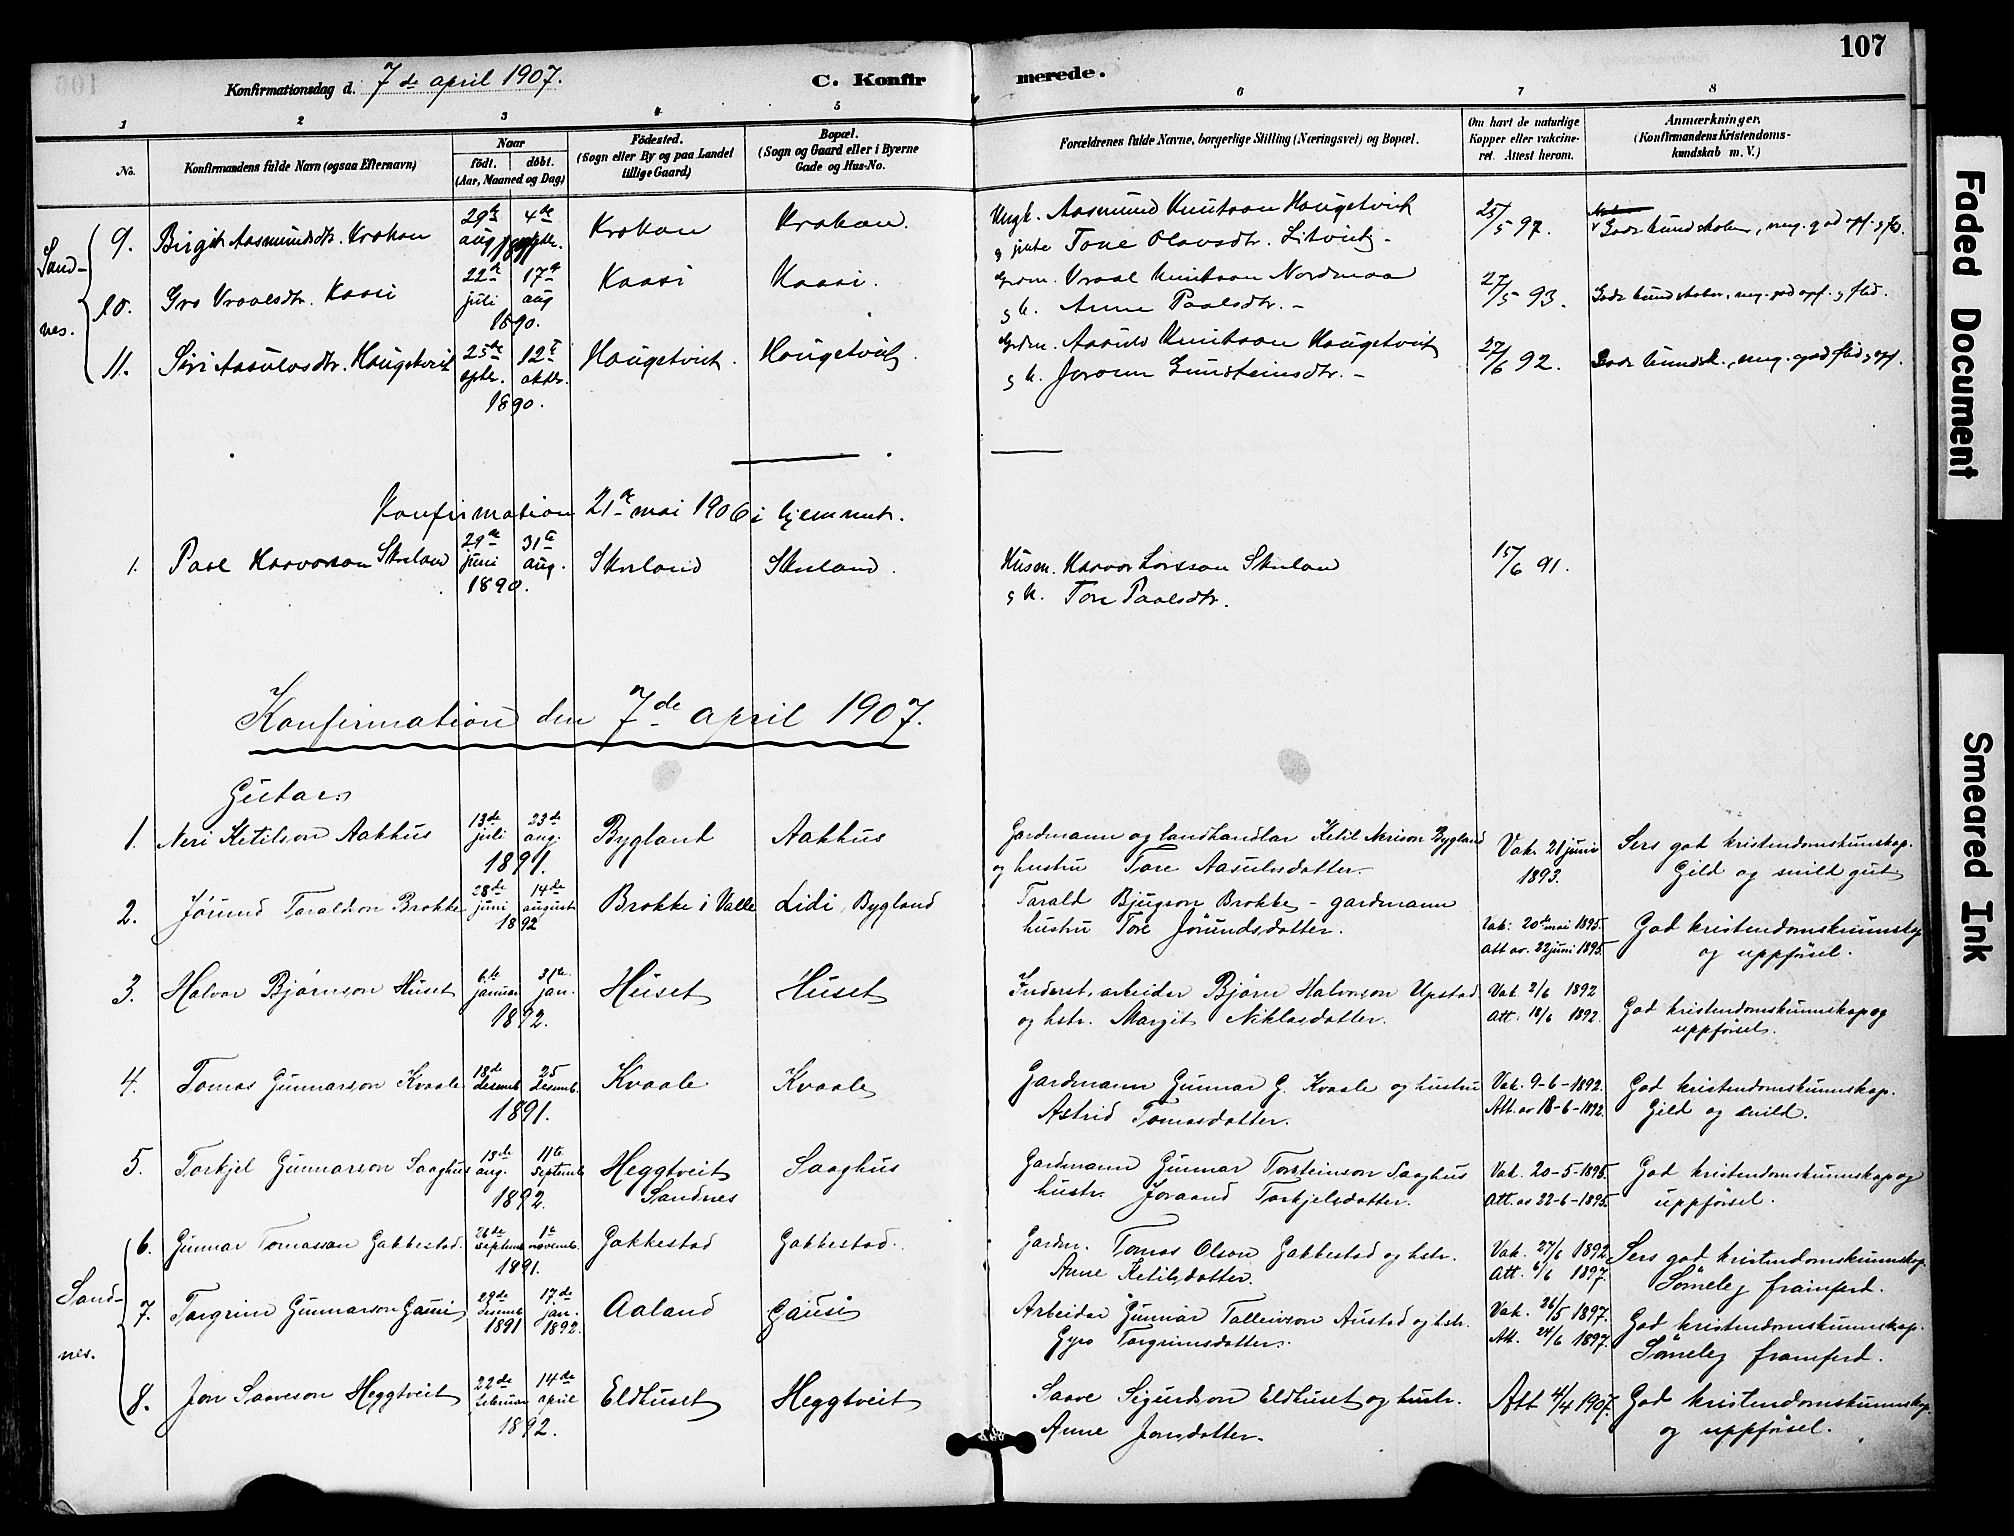 107
Konfirmationsdag d. 7de april 1907.
C. Konfirmerede.
1 2 3 4 5 6 7 8
No.
Konfirmandens fulde Navn (ogsaa Efternavn)
Naar
födt. döbt.
(Aar, Maaned og Dag)
Födested.
(Sogn eller By og paa Landet
tillige Gaard)
Bopæl.
(Sogn og Gaard eller i Byerne
Gade og Hus-No.
Forældrenes fulde Navne, borgerlige Stilling (Næringsvei) og Bopæl.
Om havt de naturlige
Kopper eller vakcine-
ret. Attest herom.
Anmærkninger.
(Konfirmandens Kristendoms-
kundskab m. V.)
Sandnes.
9. Birgit Aasmundsdtr. Krokan 29de aug 4de Krokan Krokan. Ungk. Aasmund Knutson Haugetveit 25/5 97.
g pike Tone Olavsdtr.
10. Gro Vraalsdtr. Kaasi 22de juli 17de aug 1890. Kaasi Kaasi. Grdm. Vraal Knutson Nordmaa 27/5 93. Gode kundskaber, meg. god opf. g flid.
g k. Anne Paalsdtr. –
11. Siri Aasulvsdtr. Haugetveit 25de septr. 12te oktbr. 1890. Haugetveit. Haugetveit Grdm. Aasulv Knutson Haugetveit 27/6 92. Gode kundsk., meg. god flid g opf.
g k. Joronn Gunsteinsdtr. –
Konfirmation 21de mai 1906 i hjemmet.
1. Paal Havorson Skreland 29de juni 31te aug. 1890. Skreland Skreland. Husm. Havor Larsson Skreland 15/6 91.
g k. Tore Paalsdtr.
Konfirmation den 7de april 1907.
Gutar:
1. Neri Ketilson Aakhus 13de juli 23de aug. 1891. Bygland Aakhus Gardmann og landhandlar Ketil Nerison Bygland Vak. 21 juni 1893. Sers god kristendomskunskap.
og hustru Tore Aasulvsdotter. Gild og snild gut
2. Jørund Taraldson Brokke 28de juni 14de august 1892 Brokke i Valle Lidi, Bygland Tarald Bjugson Brokke – gardmann Vak: 20de mai 1895. God kristendomskunnskap
hustru Tore Jørundsdotter. Att av. 22 juni 1895. og uppførsel.
3. Halvor Bjørnson Huset 6te januar 31te jan. 1892. Huset Huset Inderst, arbeider Bjørn Halvorson Upstad Vak 2/6 1892 God kristendomskunnskap og
og hstr. Margit Niklosdotter. Att: 18/6 1892. uppførsel.
4. Tomas Gunnarson Kvaale 18de desemb 25 desemb. 1891. Kvaale Kvaale Gardmann Gunnar G. Kvaale og hustru Vak. 9-6-1892. God kristendomskunnskap.
Astrid Tomasdotter. Att. av 18-6-1892. Gild og snild.
5. Torkjel Gunnarson Saaghus 13de aug. 11te septemb 1892. Heggtveit Sandnes Saaghus Gardmann Gunnar Torsteinson Saaghus Vak. 20-5-1895. God kristendomskunnskap og
hustr. Joraand Torkjelsdotter. Att. av 22-6-1895. uppførsel.
Sandnes.
6. Gunnar Tomasson Gakkestad. 26de septemb 1te novemb. 1891. Gakkestad Gakkestad. Gardm. Tomas Olson Gakkestad og hstr. Vak. 27/6 1892 Sers god kristendomskunnskap.
Anne Ketilsdotter. Att. 6/6 1897. Sömeleg framferd.
7. Torgrim Gunnarson Gausi 29de desemb 1891 17de jan. 1892. Aaland Gausi Arbeidar Gunnar Talleivson Austad og hstr. Vak. 26/5 1897. God kristendomskunnskap.
Gyro Torgrimsdotter. Att. 24/6 1897. Sömeleg framferd.
8. Jon Saaveson Heggtveit 22de februar 14de april 1892. Eldhuset Heggtveit Saave Sigurdson Eldhuset og hustr. Att 4/4 1907. God kristendomskunnskap.
Anne Jonsdotter. og uppførsel.
Faded Document
Smeared Ink